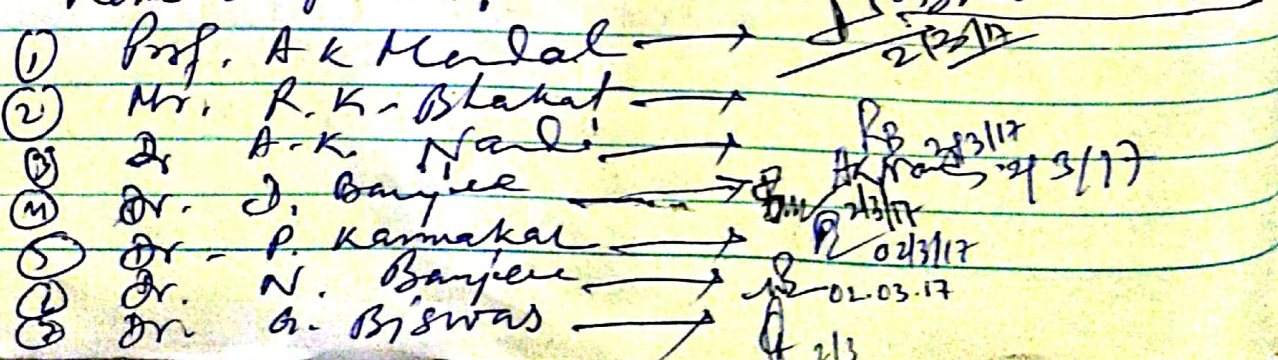 ① Prof. A K Mandal → 2/3/17
② Mr. R. K. Bhakat → RB 2/3/17
③ Dr A. K. Nandi → AKNandi 2/3/17
④ Dr. D. Banerjee → 2/3/17
⑤ Dr. P. Karmakar → 02/3/17
Dr. N. Banerjee → 02.03.17
Dr. G. Biswas → 2/3